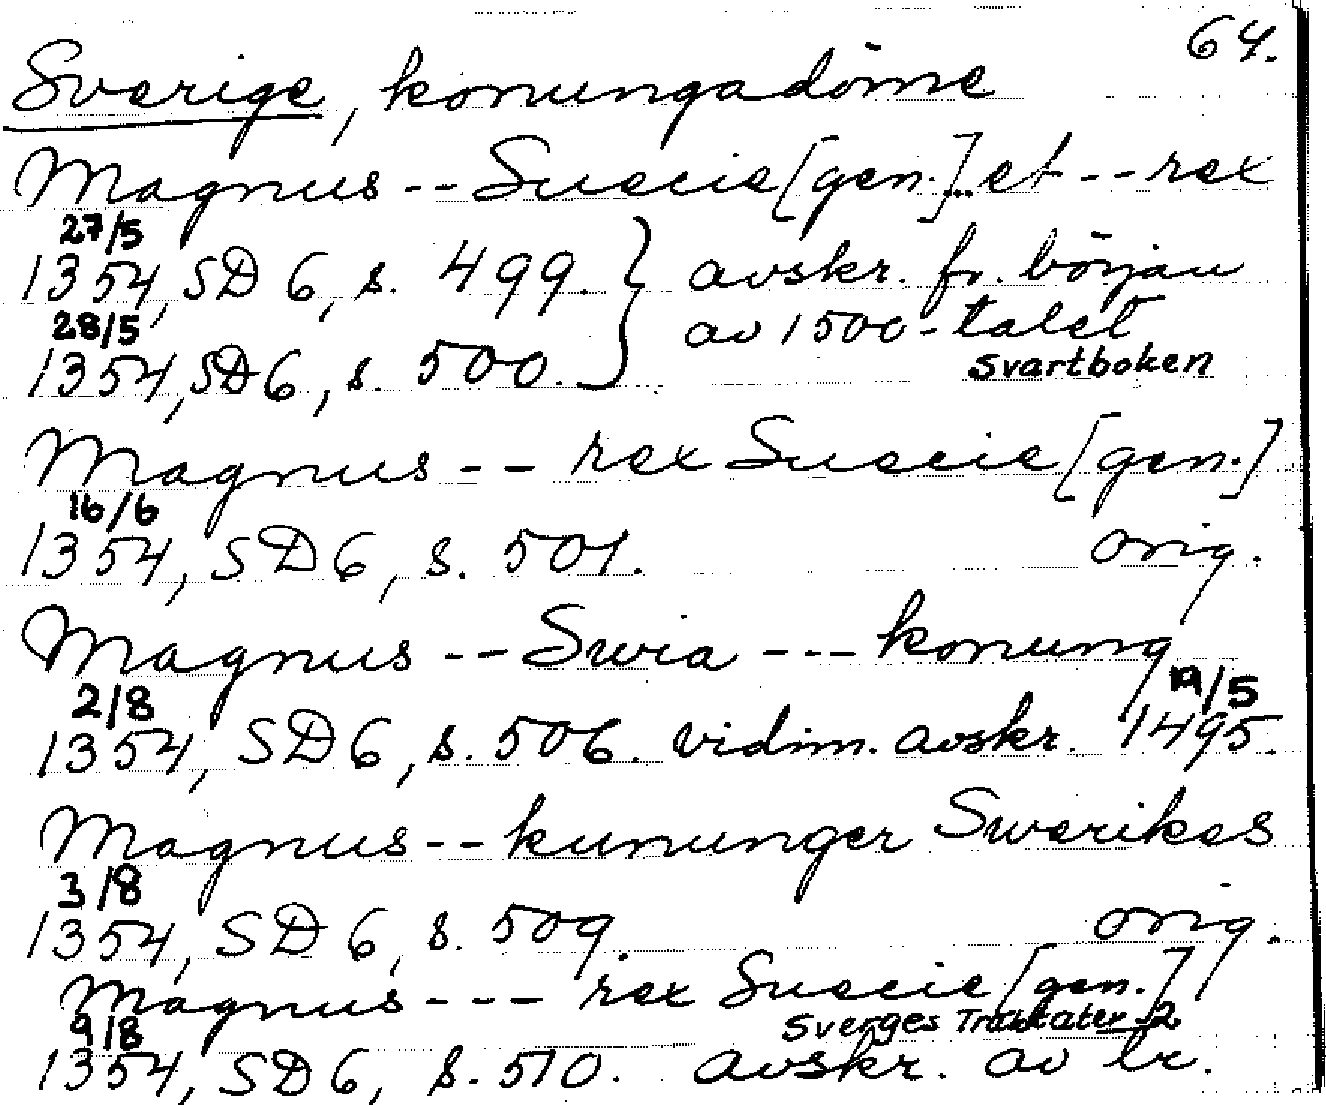 64.
Sverige, konungadöme
Magnus -- Suecie [gen.] et -- rex
27/5
1354, SD 6, s. 499. } avskr. fr. början
28/5 av 1500-talet
1354, SD 6, s. 500. Svartboken
Magnus -- rex Suecie [gen.]
16/6
1354, SD 6, s. 501. orig.
Magnus -- Swia --- konung
2/8 19/5
1354, SD 6, s. 506. vidim. avskr. 1495.
Magnus -- kununger Swerikes
3/8
1354, SD 6, s. 509. orig.
Magnus --- rex Suecie [gen.]
9/8 Sverges Traktater 2
1354, SD 6, s. 510. avskr. av br.